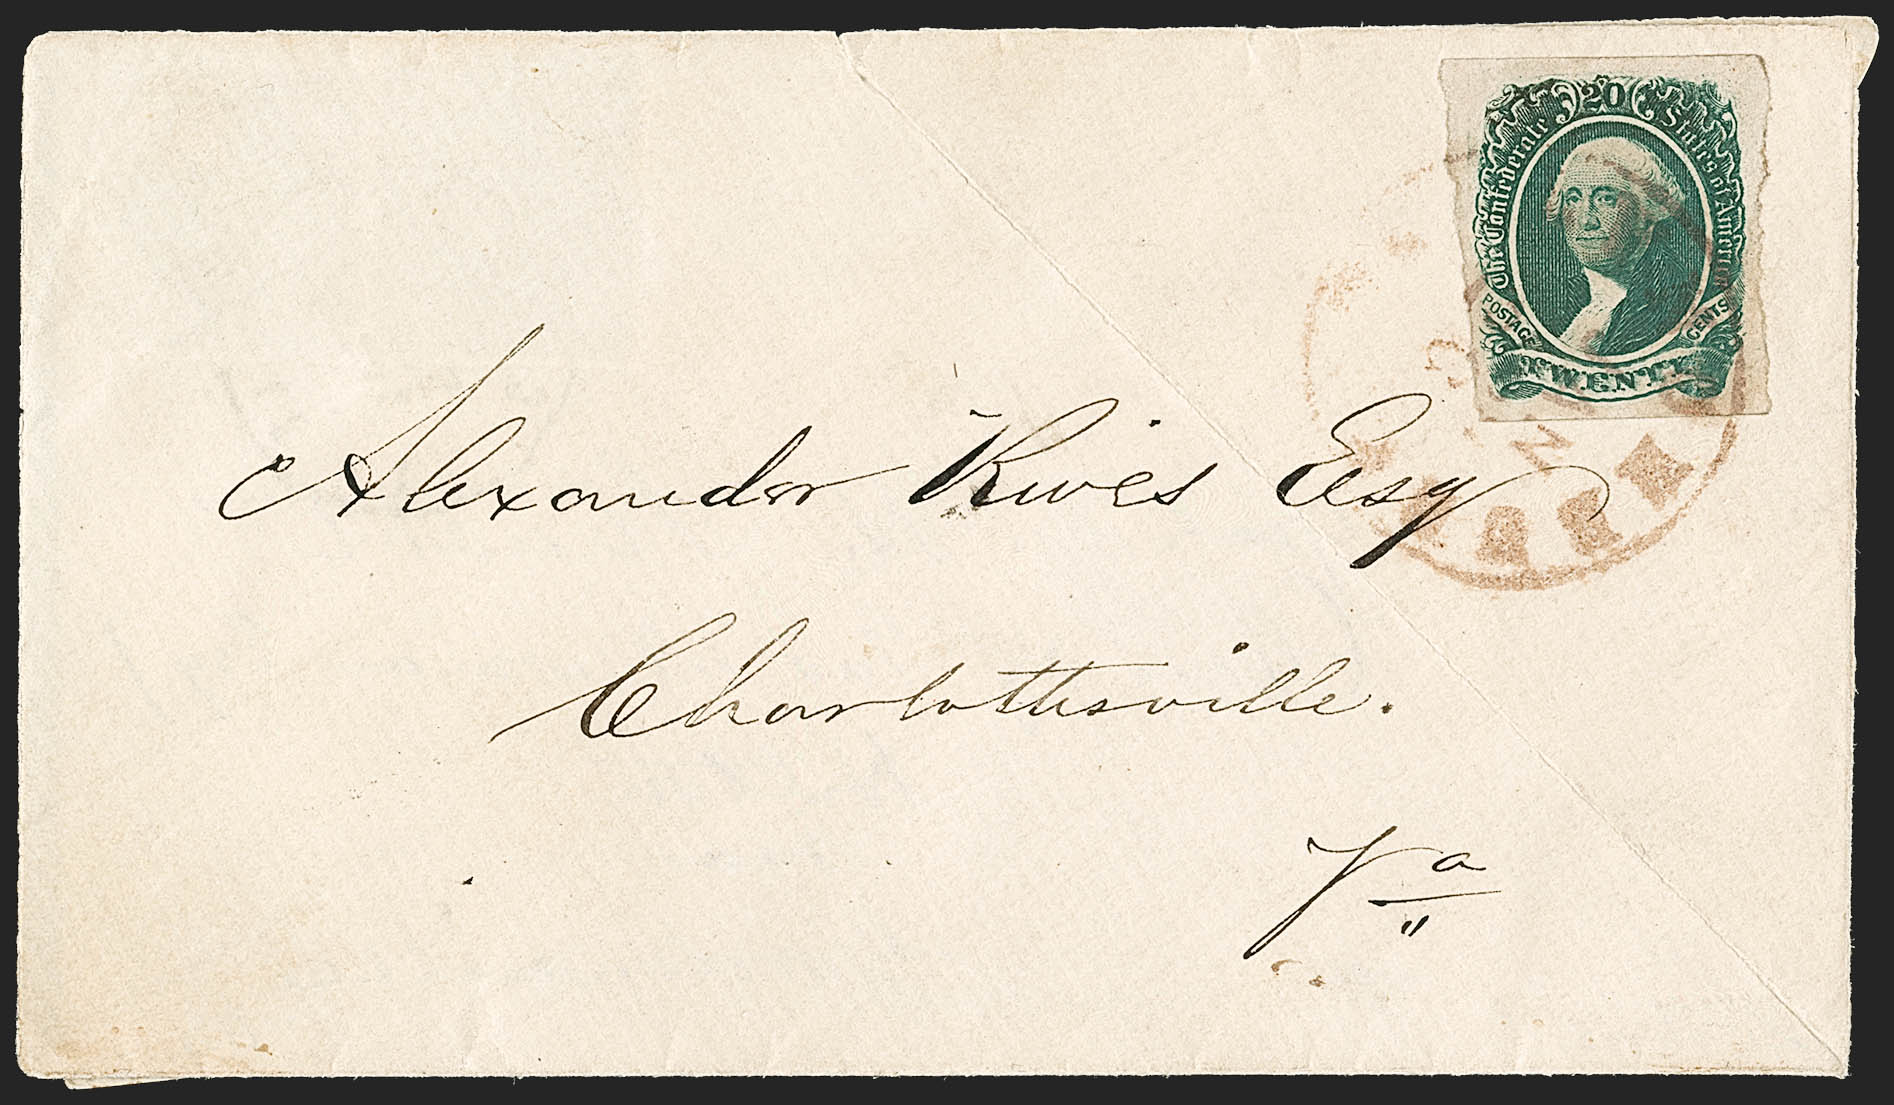 20
The Confederate States of America
POSTAGE CENTS
TWENTY
Alexander Rives Esqr
Charlottesville.
Va